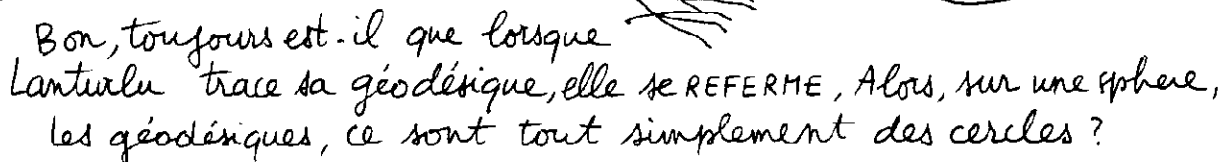 Bon, toujours est-il que lorsque
Lanturlu trace sa géodésique, elle se REFERME, Alors, sur une sphere,
les géodésiques, ce sont tout simplement des cercles ?